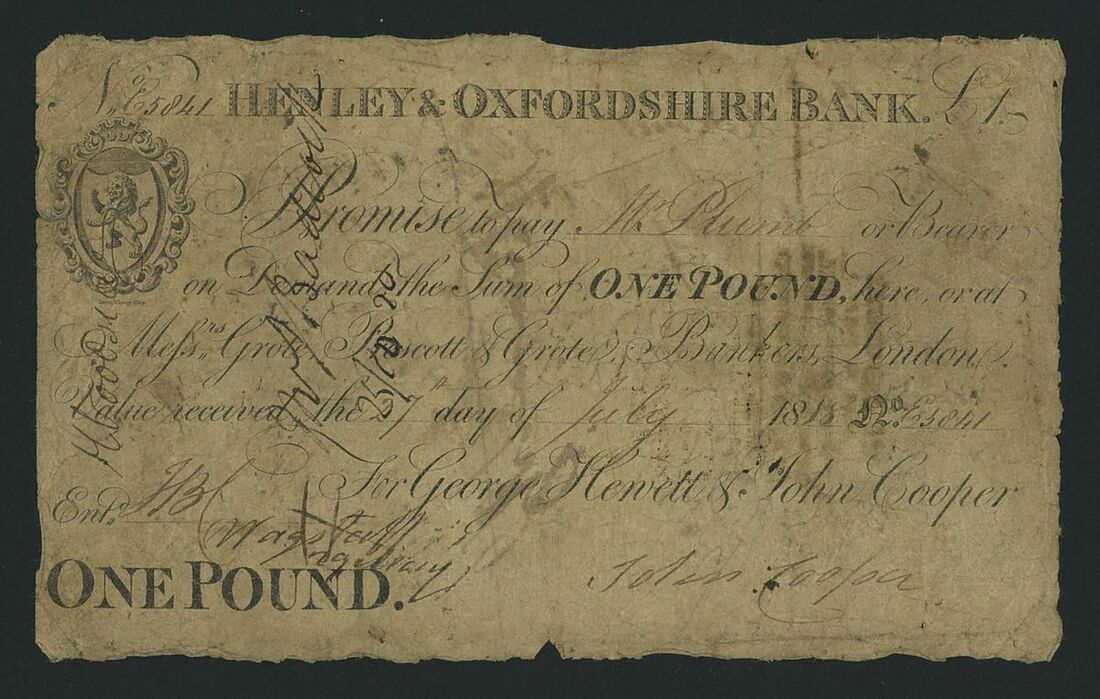 No E5841 HENLEY & OXFORDSHIRE BANK. £1
Promise to pay Mr Plumb or Bearer
on Demand the Sum of ONE POUND, here, or at
Messrs Grote, Prescott & Grote, Bankers, London.
Value received the 27th day of July 1818 No E5841
For George Hewett & John Cooper
Entd
Wagstaff
ONE POUND.
John Cooper